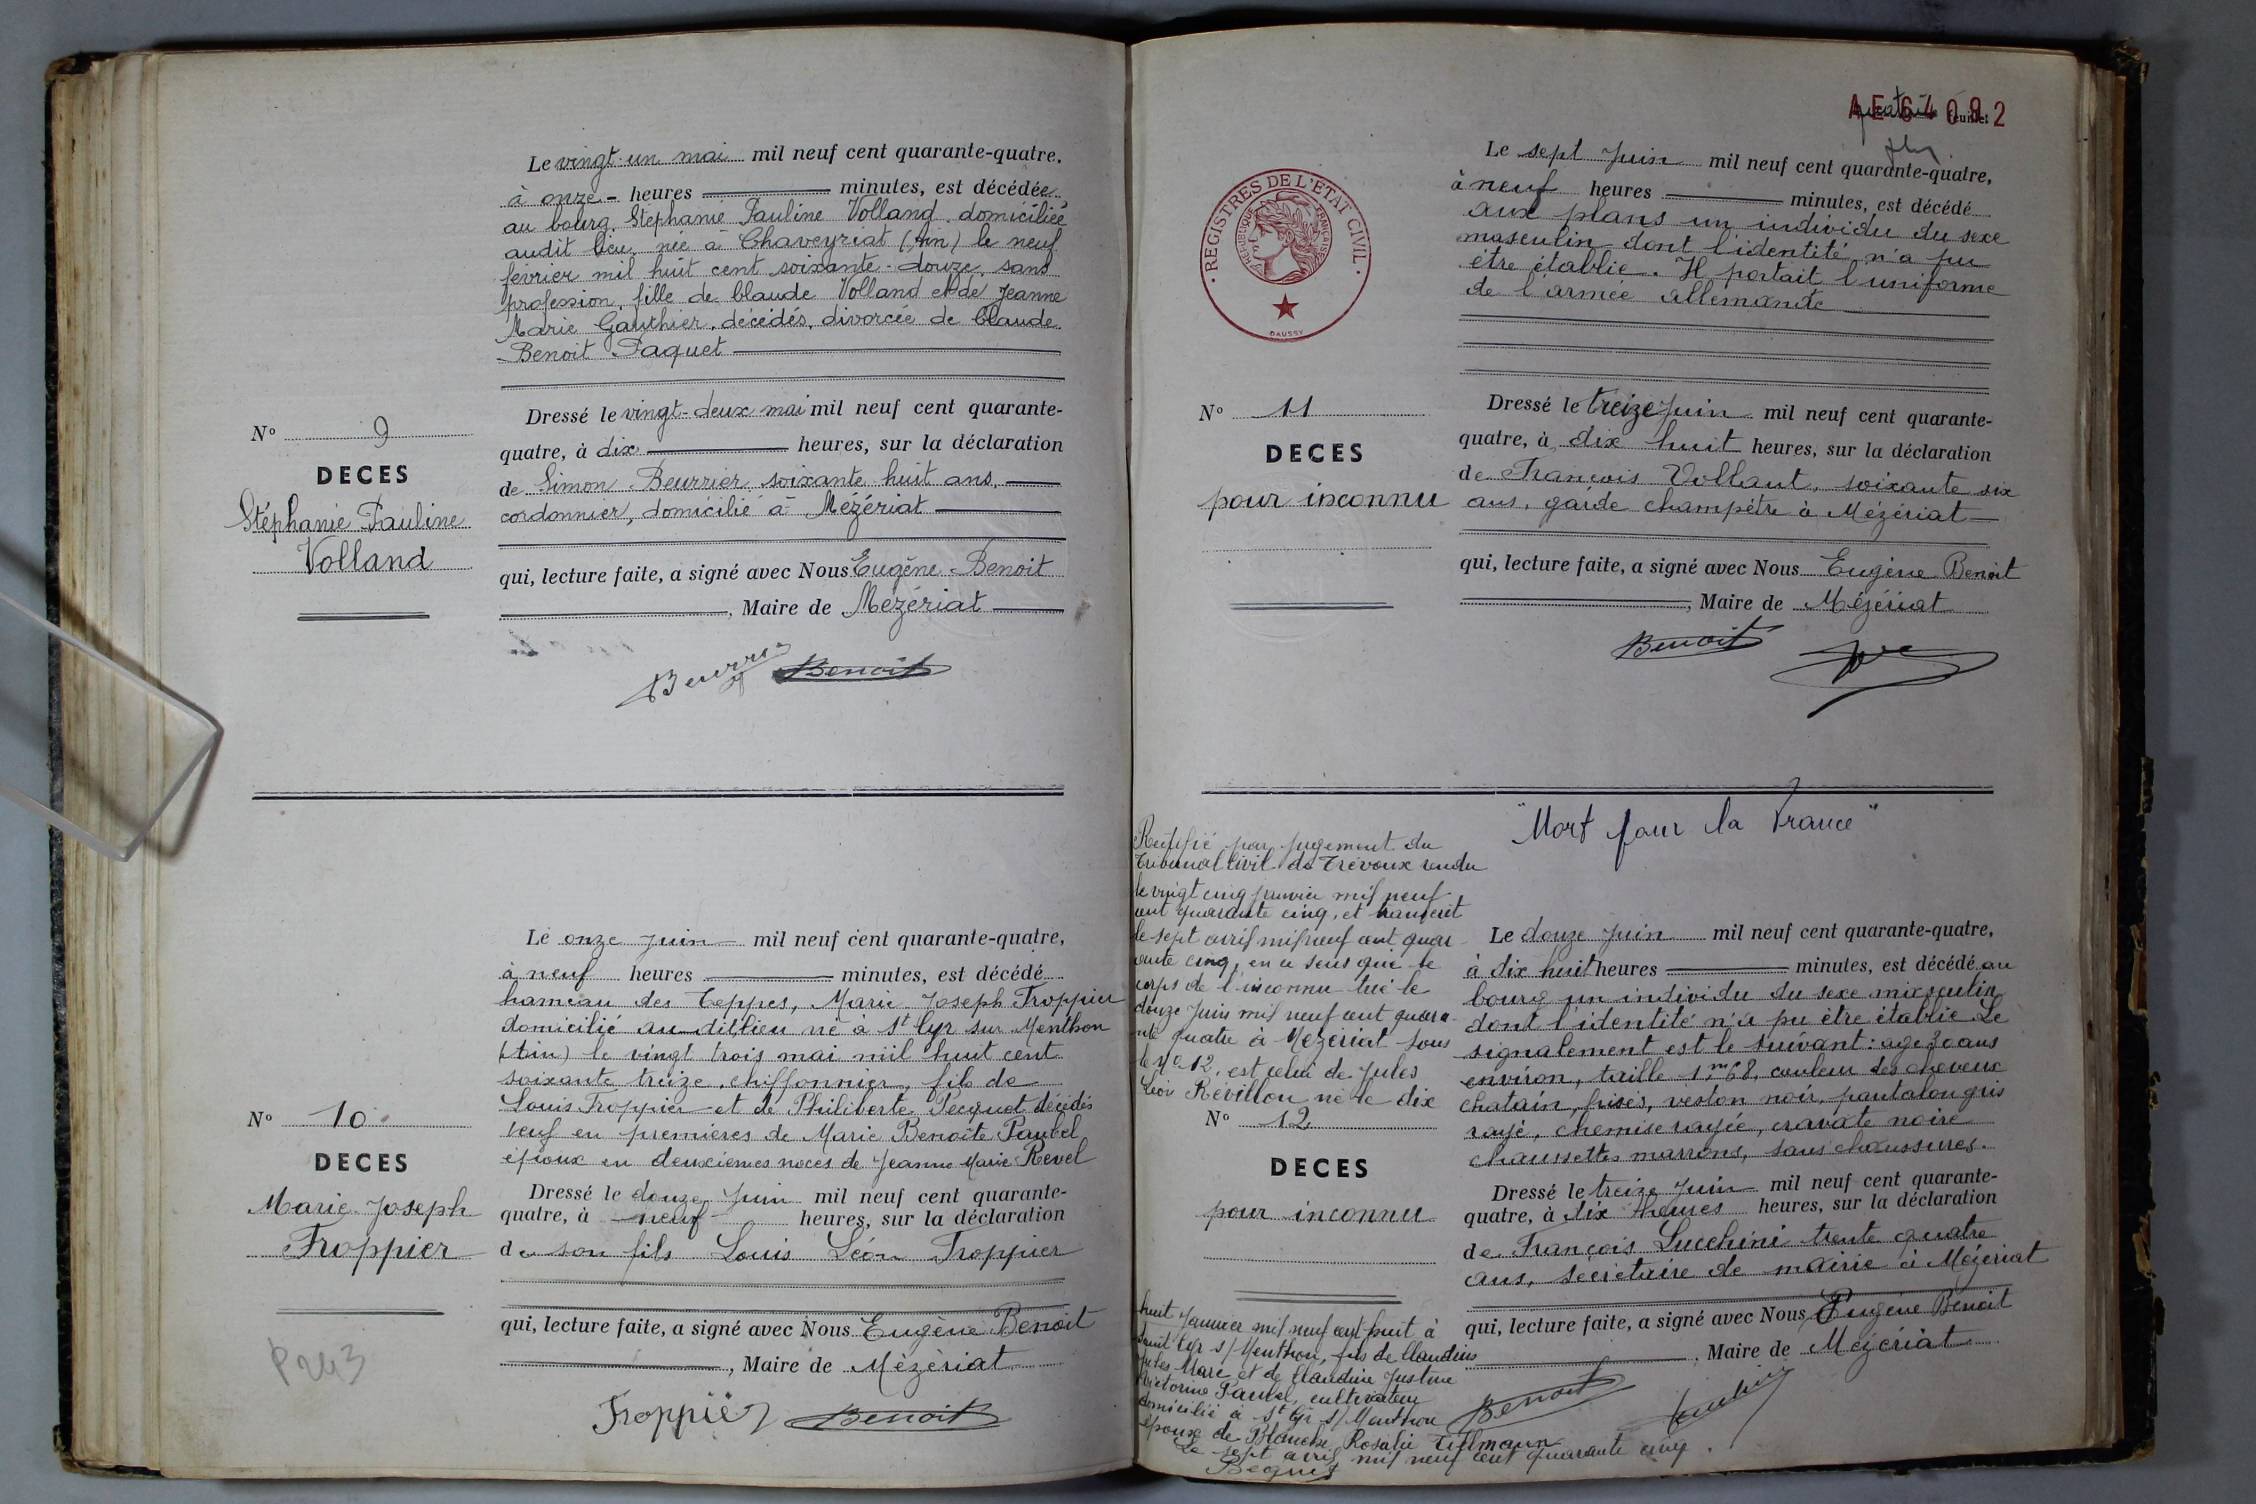 Le vingt-un mai mil neuf cent quarante-quatre,
à onze - heures minutes, est décédée
au bourg, Stéphanie Pauline Volland domiciliée
audit lieu, née à Chaveyriat (Ain) le neuf
fevrier mil huit cent soixante-douze, sans
profession, fille de Claude Volland et de Jeanne
Marie Gauthier, décédés, divorcée de Claude
Benoit Paquet
N° 9
DECES
Stéphanie Pauline
Volland
Dressé le vingt-deux mai mil neuf cent quarante-
quatre, à dix heures, sur la déclaration
de Simon Beurrier soixante huit ans,
cordonnier, domicilié à Mézériat
qui, lecture faite, a signé avec Nous Eugène Benoit
, Maire de Mézériat
Beurrier Benoit
Le onze juin mil neuf cent quarante-quatre,
à neuf heures minutes, est décédé
hameau des Teppes, Marie Joseph Troppier
domicilié au dit lieu né à St Cyr sur Menthon
(Ain) le vingt trois mai mil huit cent
soixante treize, chiffonnier, fils de
Louis Troppier et de Philiberte Pecquet décédés
veuf en premières de Marie Benoîte Paubel
époux en deuxièmes noces de Jeanne Marie Revel
N° 10
DECES
Marie-Joseph
Troppier
Dressé le douze juin mil neuf cent quarante-
quatre, à neuf heures, sur la déclaration
de son fils Louis Léon Troppier
qui, lecture faite, a signé avec Nous Eugène Benoit
, Maire de Mézériat
Troppier Benoit
P243
AE64092
Feuillet
REGISTRES DE L'ETAT CIVIL
REPUBLIQUE FRANÇAISE
DAUSSY
Le sept juin mil neuf cent quarante-quatre,
à neuf heures minutes, est décédé
aux plans un individu du sexe
masculin dont l'identité n'a pu
être établie. Il portait l'uniforme
de l'armée allemande
N° 11
DECES
pour inconnu
Dressé le treize juin mil neuf cent quarante-
quatre, à dix huit heures, sur la déclaration
de François Vollaut, soixante six
ans, garde champêtre à Mézériat
qui, lecture faite, a signé avec Nous Eugène Benoit
, Maire de Mézériat
Benoit
"Mort pour la France"
Rectifié par jugement du
Tribunal Civil de Trévoux rendu
le vingt cinq janvier mil neuf
cent quarante cinq, et transcrit
le sept avril mil neuf cent quar
ante cinq, en ce sens que le
corps de l'inconnu tué le
douze Juin mil neuf cent quara-
nte quatre à Mézériat sous
le N° 12, est celui de Jules
Léon Révillon né le dix
Le douze juin mil neuf cent quarante-quatre,
à dix huit heures minutes, est décédé au
bourg un individu du sexe masculin
dont l'identité n'a pu être établie. Le
signalement est le suivant: age 30 ans
environ, taille 1m68, couleur des cheveux
chatain, frisés, veston noir, pantalon gris
rayé, chemise rayée, cravate noire
chaussettes marrons, sans chaussures.
N° 12
DECES
pour inconnu
Dressé le treize juin mil neuf cent quarante-
quatre, à dix heures, sur la déclaration
de François Lucchini trente quatre
ans, secrétaire de mairie à Mézériat
qui, lecture faite, a signé avec Nous Eugène Benoit
, Maire de Mézériat
Benoit
huit Janvier mil neuf cent huit à
Saint Cyr s/ Menthon, fils de Claudius
Jules Marc et de Claudine Justine
Victorine Paubel, cultivateur
domicilié à St Cyr s/ Menthon
époux de Blanche Rosalie Tillmann
Le sept avril mil neuf cent quarante cinq.